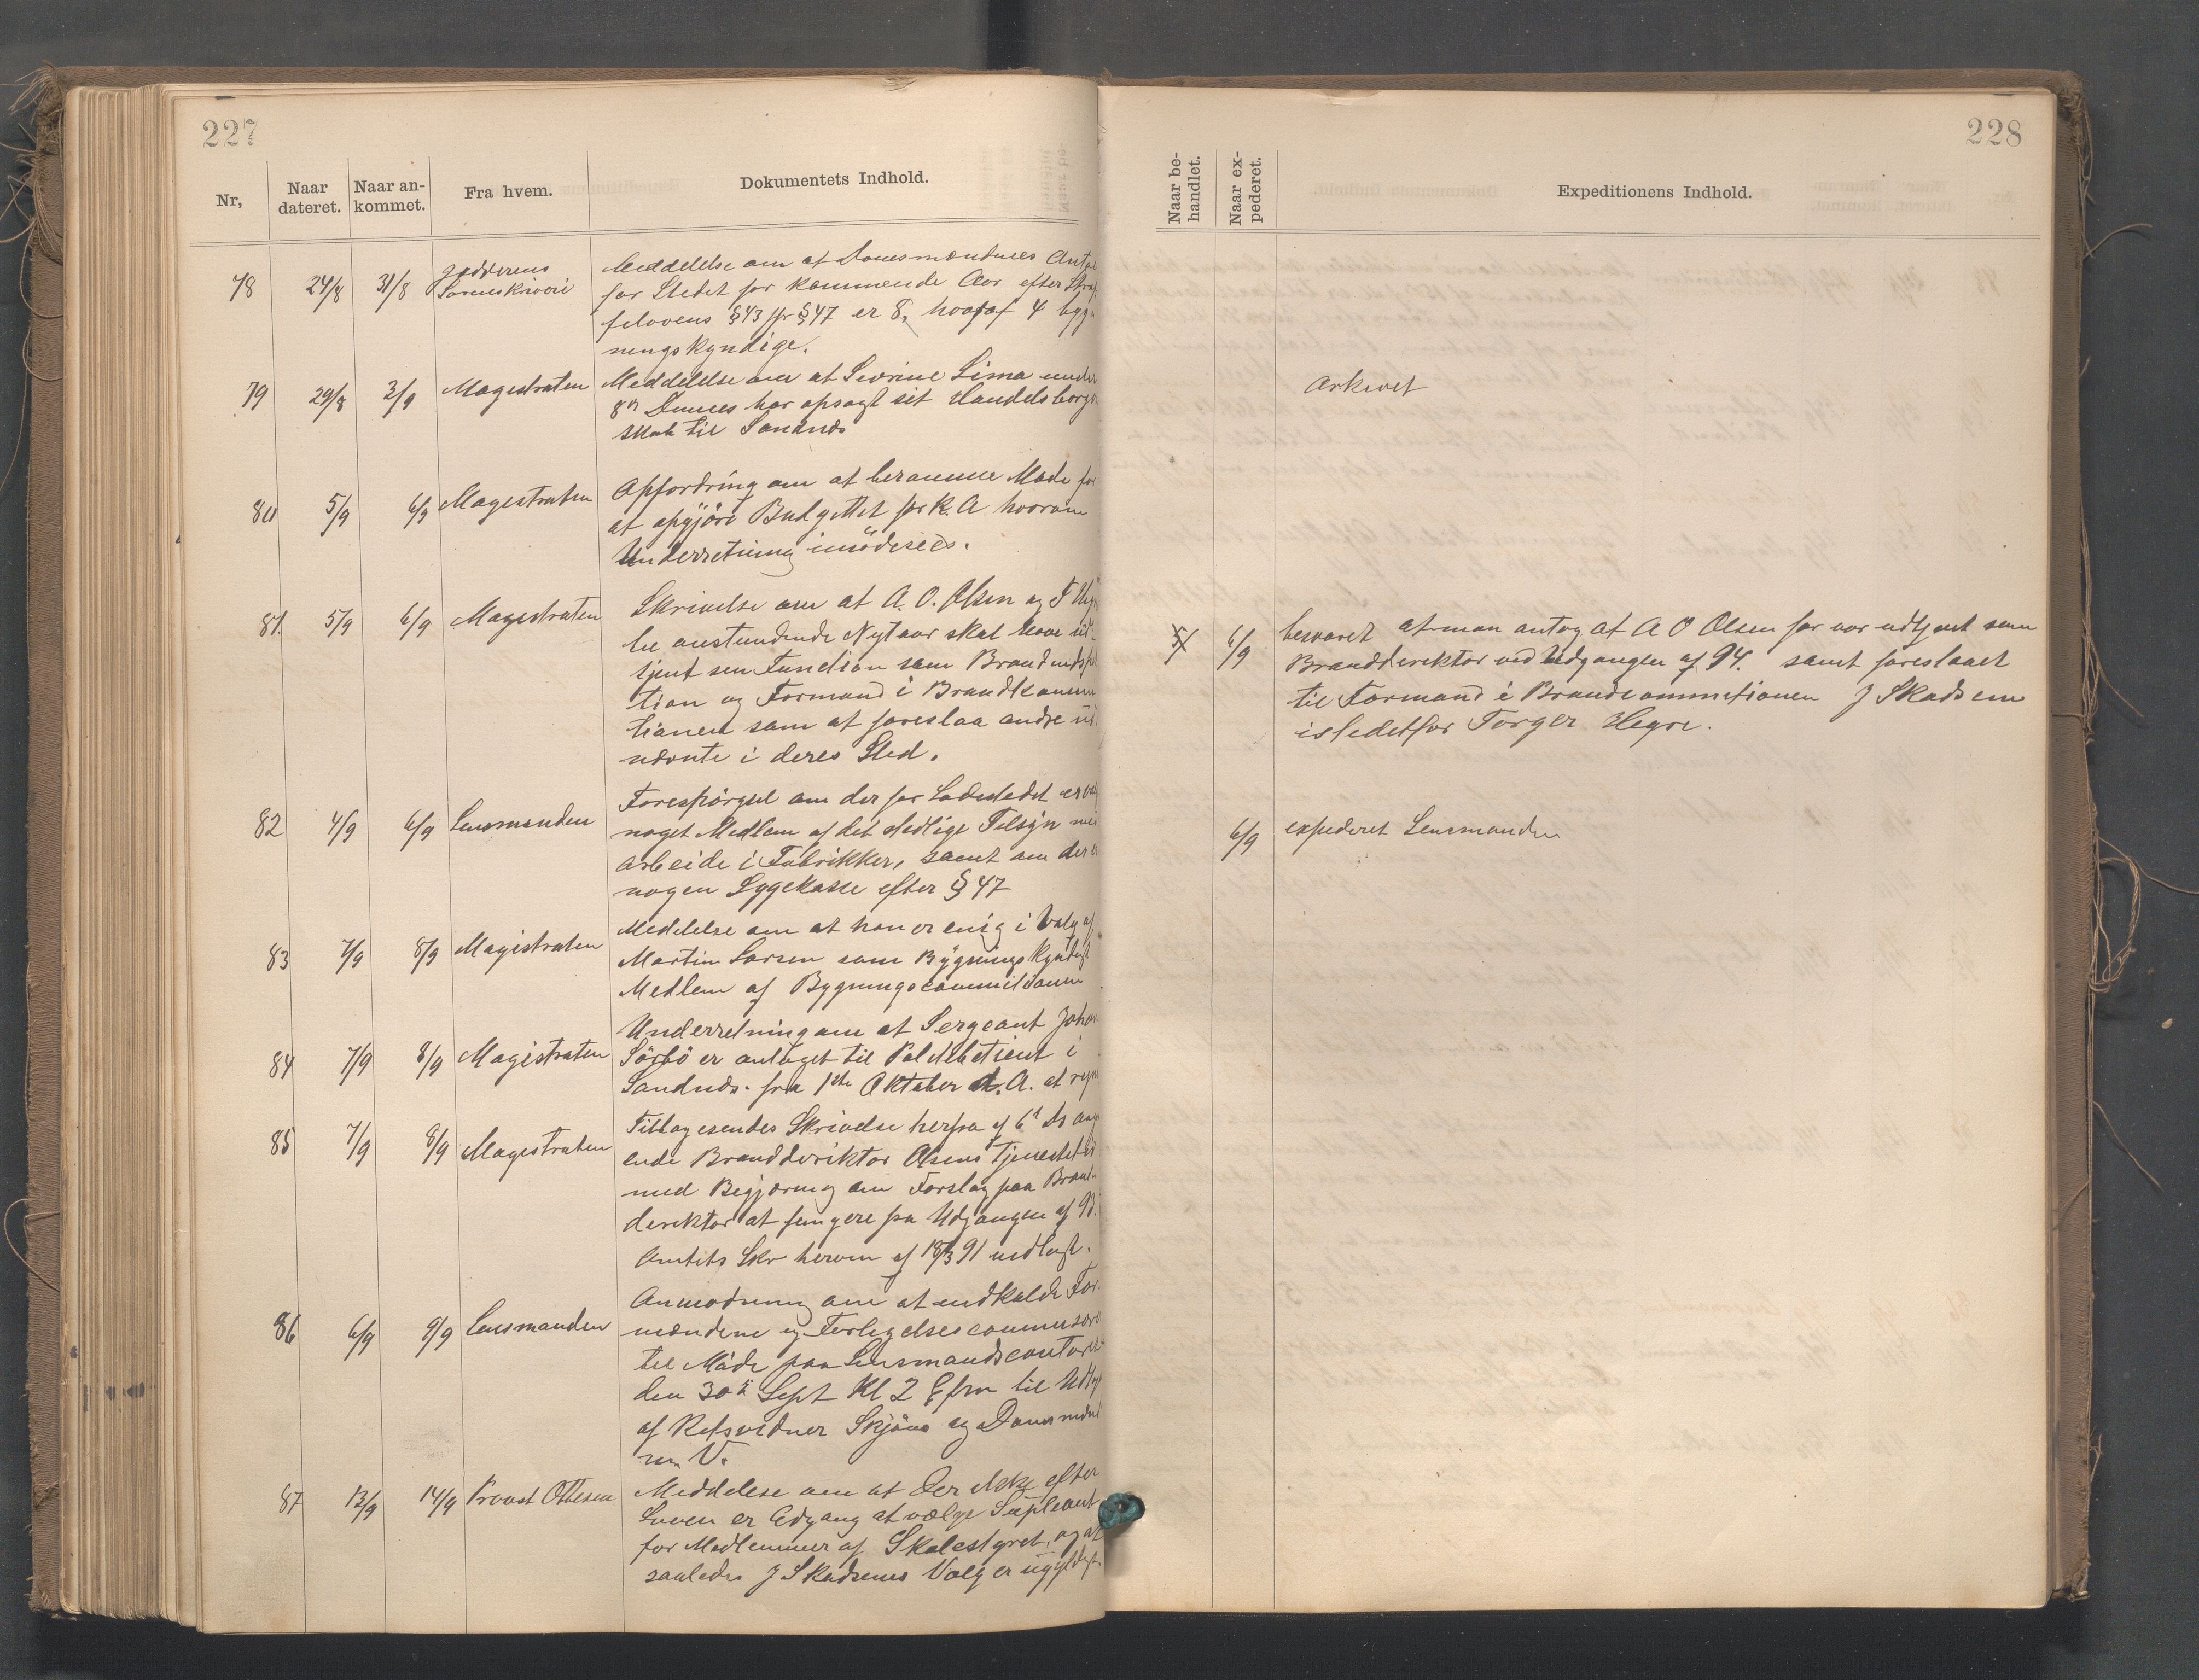 227
Nr,
Naar dateret.
Naar an-kommet.
Fra hvem.
Dokumentets Indhold.
78 24/8 31/8 Jædderens Sorenskriveri
Meddelelse om at Domsmændenes Antal
for Stedet for kommende Aar efter Straf
felovens §43 jfr §47 er 8, hvoraf 4 byg
ningskyndige.
79 29/8 3/9 Magistraten
Meddelelse om at Sevrine Lima under
8de Dennes har opsagt sit Handelsborger
skab til Sandnæs
80 5/9 6/9 Magistraten
Opfordring om at beramme Møde for
at opgjøre Budgettet for k. A hvorom
Underretning imødesees.
81. 5/9 6/9 Magistraten
Skrivelse om at A. O. Olsen og T Heg
be anstundende Nytaar skal have ud-
tjent sen Function som
tion og Formand i Brandkommi
tionen sam at foreslaa andre ud
nævnte i deres Sted.
82 4/9 6/9 Lensmanden
Forespörgsel om der for Ladestedet er
noget Medlem af det stedlige Tilsyn med
Arbeide i Fabrikker, samt om der er
nogen Sygekasse efter § 47
83 7/9 8/9 Magistraten
Meddelelse om at han er enig i Valg af
Martin Larsen som Bygningskyndigt
Medlem af Bygningscommissionen
84 7/9 8/9 Magistraten
Underretning om at Sergeant Johan
Sörbö er antaget til Politibetjent i
Sandnæs fra 1ste Oktober d. A. at regn
85 7/9 8/9 Magistraten
Tilbagesendes Skrivelse herfra af 6te Ds ang
ende Branddirektör Olsens Tjenestetid
med Begjæring om Forslag paa Brand-
direktör at fungere fra Udgangen af 93.
Amtets Skr herom af 18/3 91 vedlagt.
86 6/9 9/9 Lensmanden
Anmodning om at indkalde For-
mændene og Forligelsescommissære
til Möde paa Lensmandscontoret
den 30te Sept Kl 2 Efm til Udtag
af Retsvidner Skjöns og Domsmænd
m. V.
87 13/9 14/9 Provst Ottesen
Meddelese om at der ikke efter
Loven er Adgang at vælge Supleant
for Medlemmer af Skolestyret, og at
saaledes J Skadsems Valg er ugyldigt.
228
Naar be-handlet.
Naar ex-pederet.
Expeditionens Indhold.
Arkivet
5/ 6/9 besvaret at man antog at A O Olsen før var udtjent som
Branddirektør ved Udgangen af 94. samt foreslaaet
til Formand i Brandcommitionen J Skadsem
istedetfor Torger Hegre.
6/9 expederet Lensmanden